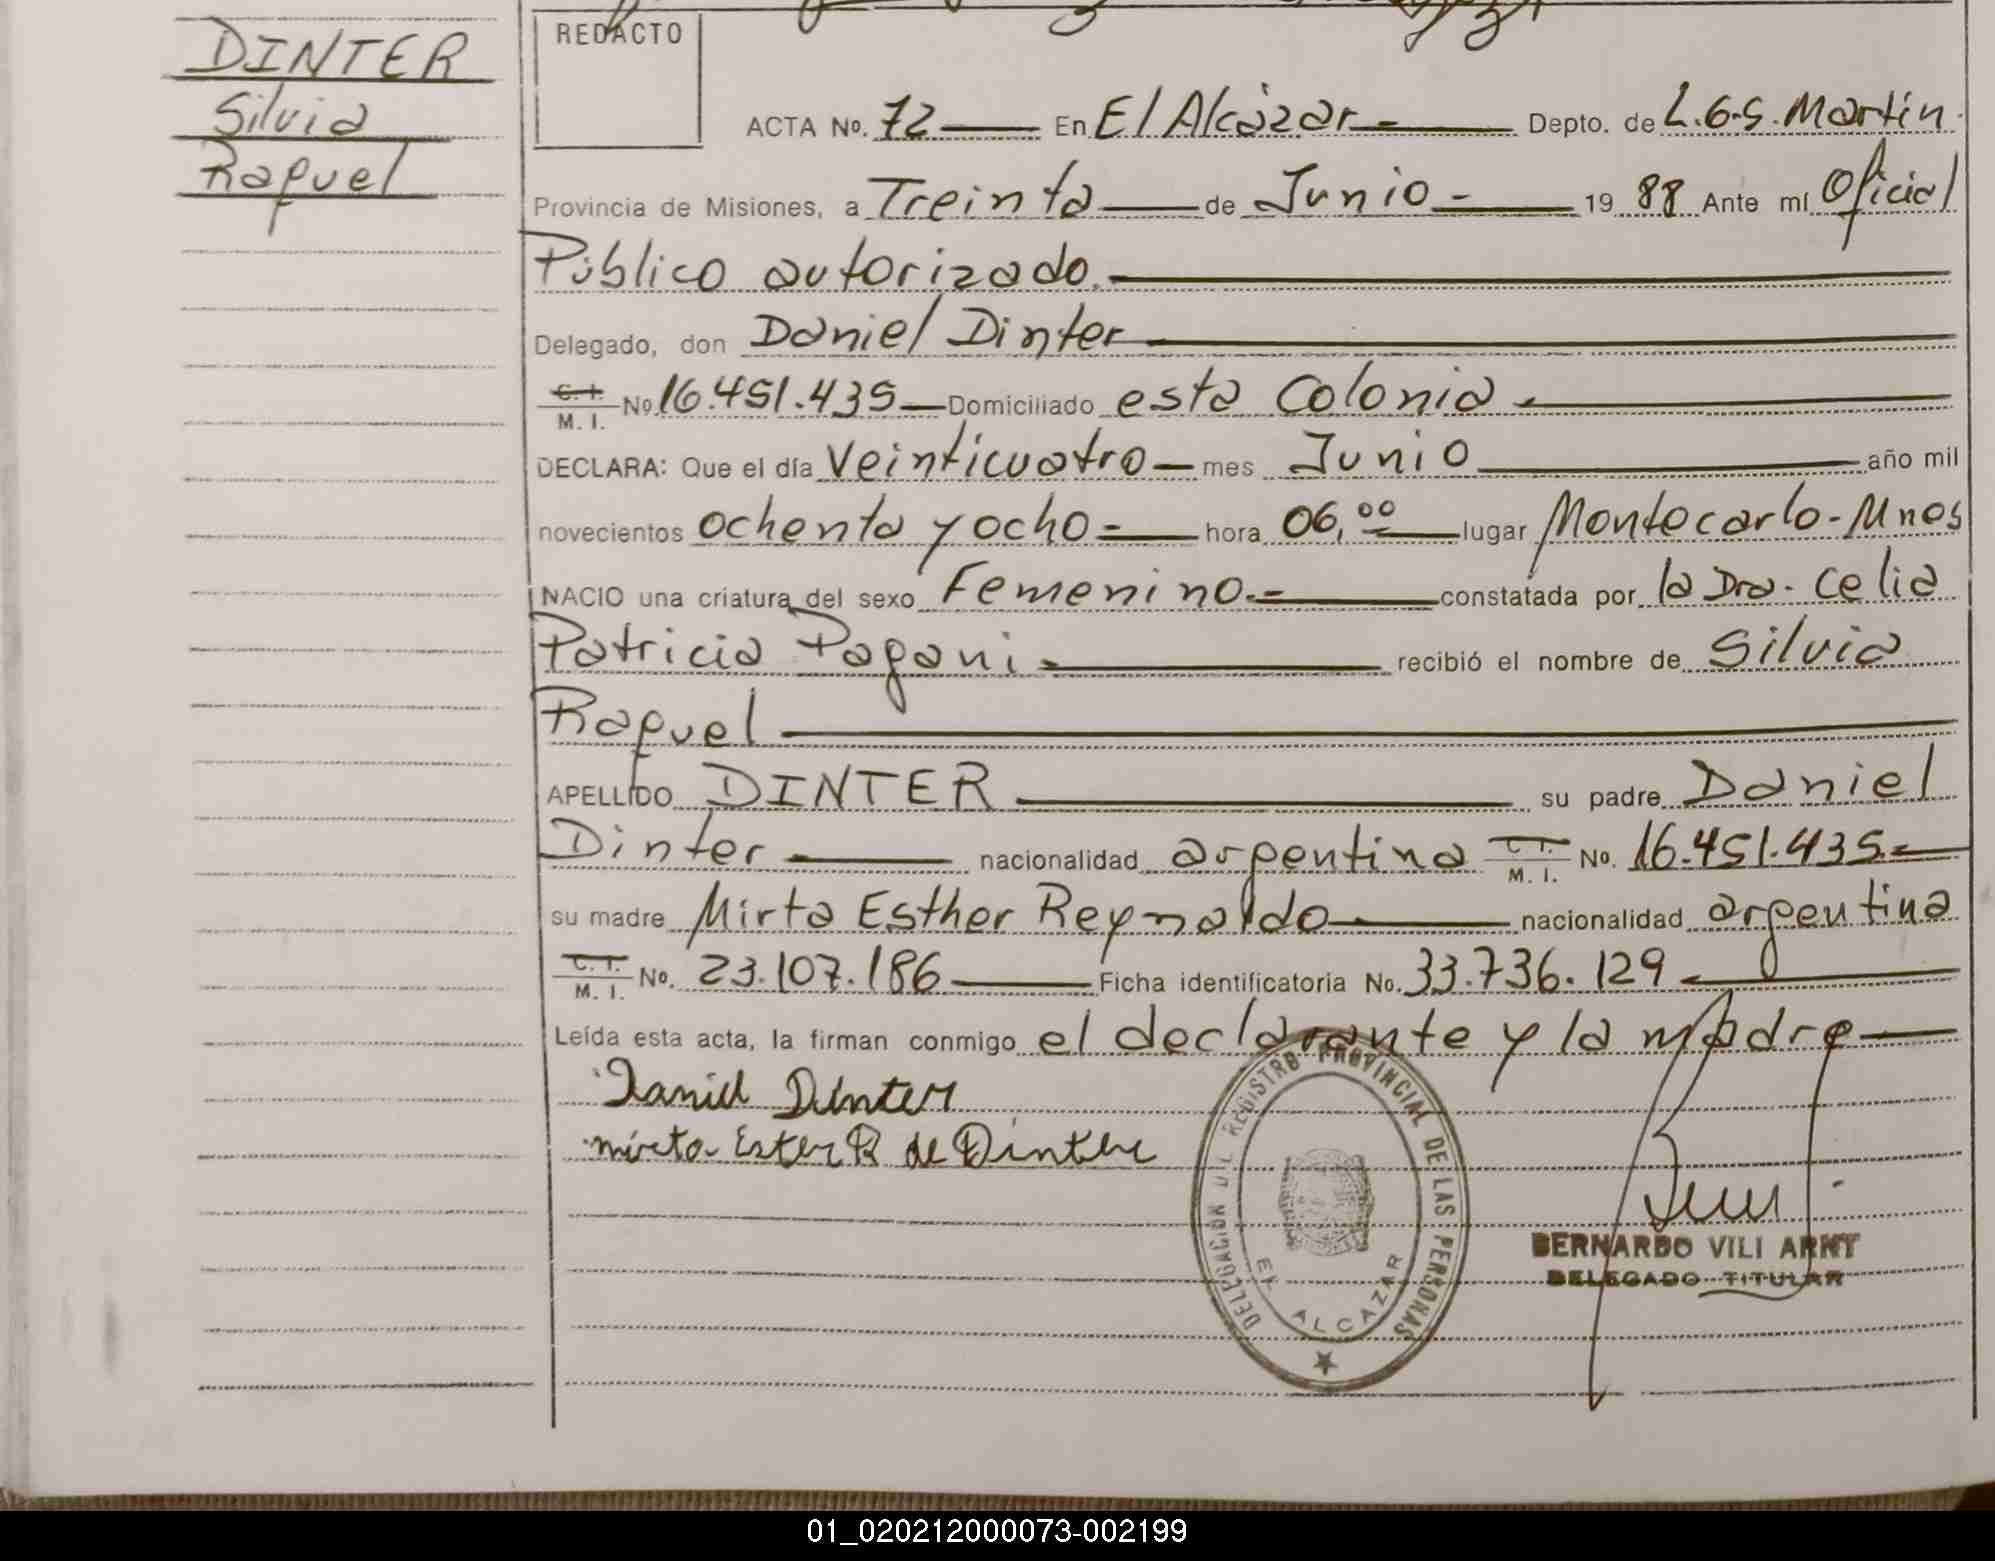 DINTER
Silvia
Raquel
REDACTO
ACTA No. 72 En El Alcázar.- Depto. de L.G.S. Martín.
Provincia de Misiones, a Treinta de Junio.- 19 88 Ante mí Oficial
Público autorizado.
Delegado, don Daniel Dinter
C. I. M. I. No. 16.451.435 Domiciliado esta Colonia.-
DECLARA: Que el día Veinticuatro mes Junio año mil
novecientos ochenta y ocho.- hora 06,00 lugar Montecarlo-Mnes
NACIO una criatura del sexo Femenino.- constatada por la Dra. Celia
Patricia Pagani.- recibió el nombre de Silvia
Raquel
APELLIDO DINTER su padre Daniel
Dinter nacionalidad argentina C. I. M. I. No. 16.451.435.-
su madre Mirta Esther Reynaldo nacionalidad argentina
C. I. M. I. No. 23.107.186 Ficha identificatoria No. 33.736.129.-
Leída esta acta, la firman conmigo el declarante y la madre
Daniel Dinter
mirta Ester R de Dinter
DELEGACION DEL REGISTRO PROVINCIAL DE LAS PERSONAS
EL ALCAZAR
BERNARDO VILI ARNT
DELEGADO TITULAR
01_020212000073-002199